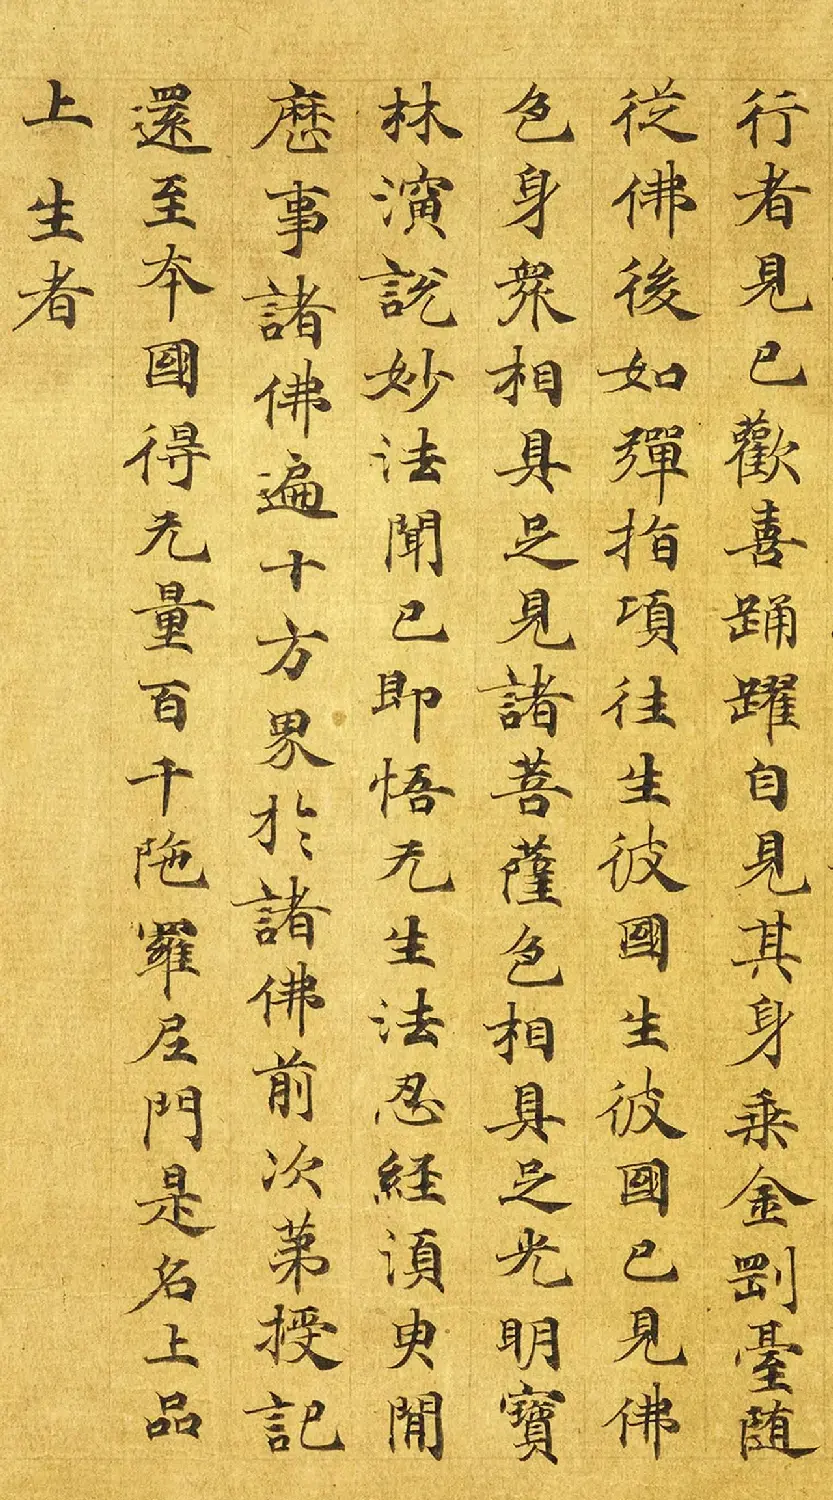 行者見已歡喜踊躍自見其身乗金剛臺随
従佛後如彈指項往生彼國生彼國已見佛
色身衆相具足見諸菩薩色相具足光明寶
林演説妙法聞已即悟无生法忍経湏臾閒
歴事諸佛遍十方界於諸佛前次苐授記
還至本國得无量百千陁羅尼門是名上品
上生者